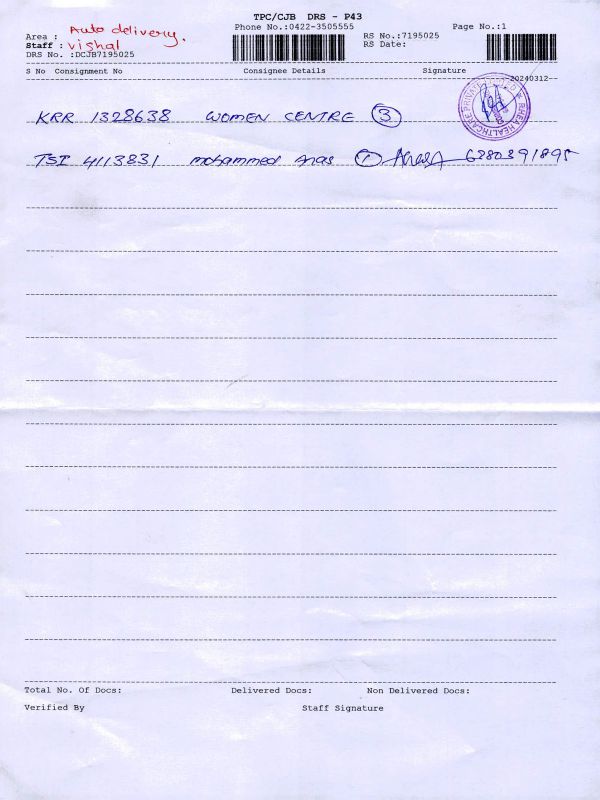 TPC/CJB DRS - P43
Phone No.:0422-3505555 Page No.:1
Area : Auto delivery.
RS No.:7195025
Staff : Vishal
RS Date:
DRS No. :DCJB7195025
S No Consignment No Consignee Details Signature
20240312
KRR 1328638 WOMEN CENTRE 3
RHEA HEALTHCARE PRIVATE
TSI 4113831 mohammed Anas 1 Anas 6380391895
Total No. Of Docs: Delivered Docs: Non Delivered Docs:
Verified By Staff Signature